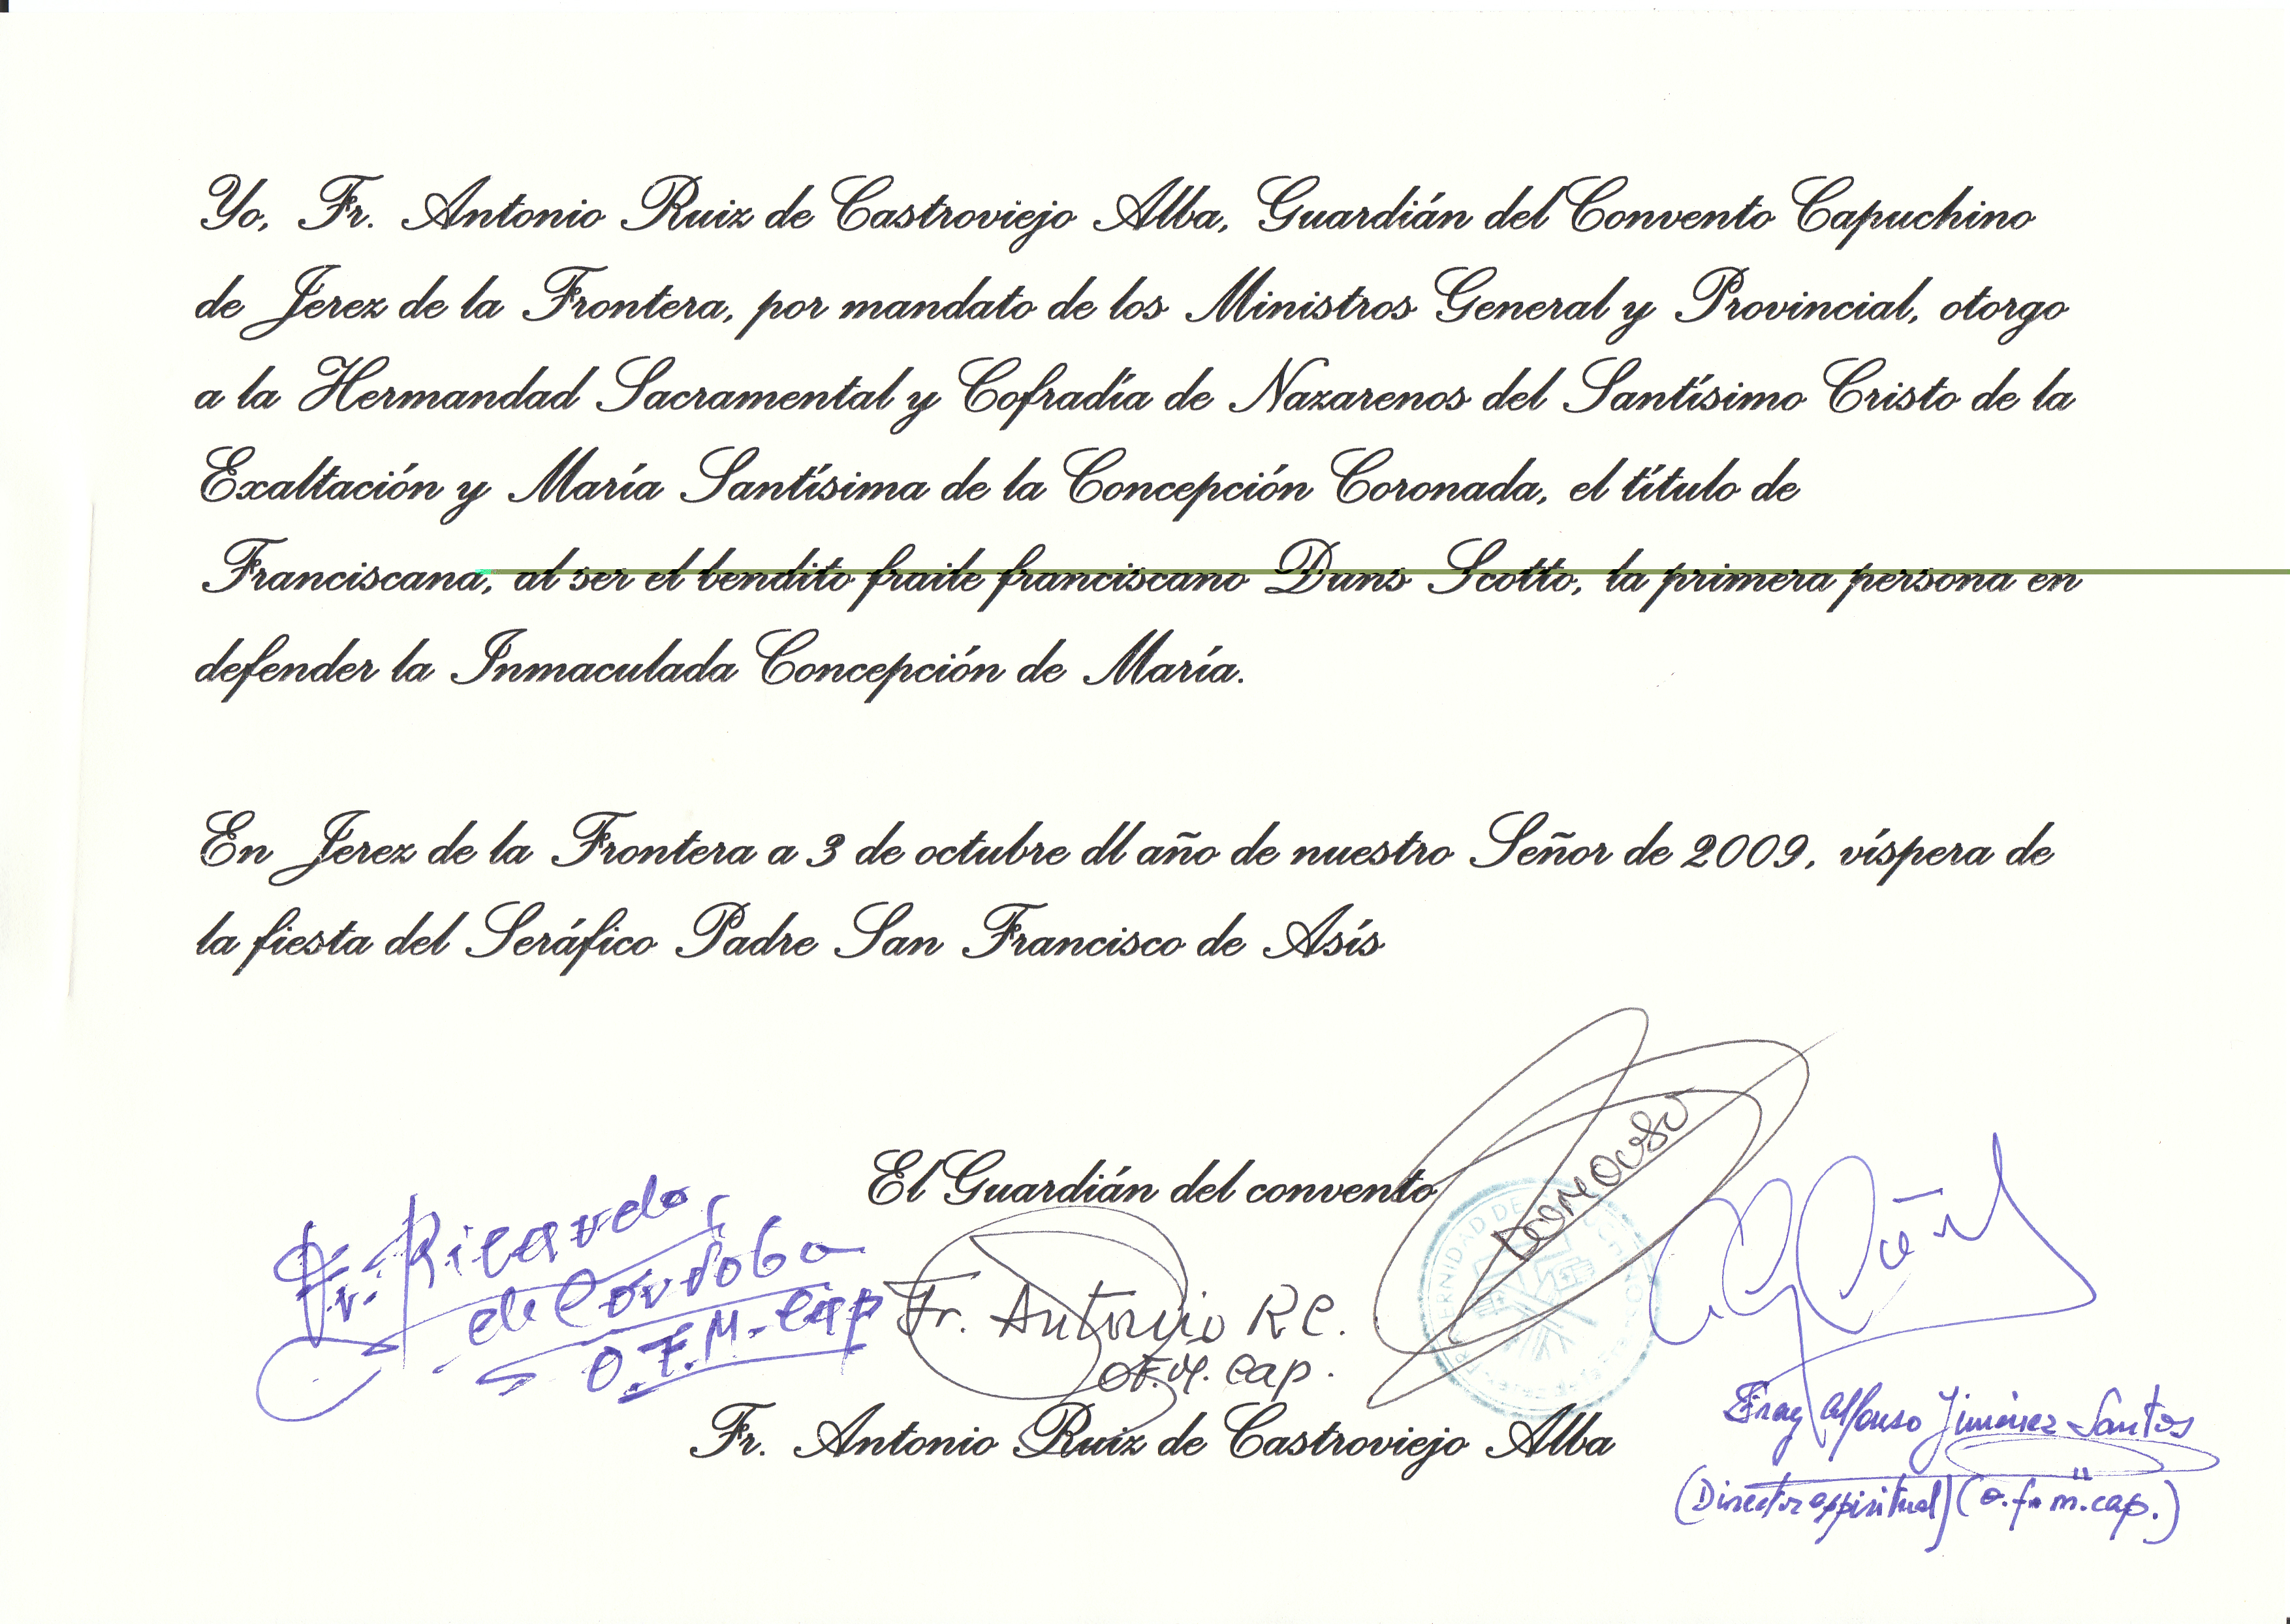 Yo, Fr. Antonio Ruiz de Castroviejo Alba, Guardián del Convento Capuchino
de Jerez de la Frontera, por mandato de los Ministros General y Provincial, otorgo
a la Hermandad Sacramental y Cofradía de Nazarenos del Santísimo Cristo de la
Exaltación y María Santísima de la Concepción Coronada, el título de
Franciscana, al ser el bendito fraile franciscano Duns Scotto, la primera persona en
defender la Inmaculada Concepción de María.
En Jerez de la Frontera a 3 de octubre dl año de nuestro Señor de 2009, víspera de
la fiesta del Seráfico Padre San Francisco de Asís
El Guardián del convento
Fr. Ricardo
de Córdoba
O.F.M. Cap
Fr. Antonio R.C.
O.F.M. Cap.
Fr. Antonio Ruiz de Castroviejo Alba
Fray Alfonso Jiménez Santos
(Director espiritual) (o.f.m.cap.)